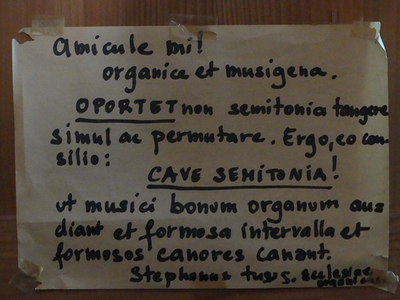 Amicule mi!
organice et musigena.
OPORTET non semitonia tangere
simul ac permutare. Ergo, eo con-
silio:
CAVE SEMITONIA!
ut musici bonum organum aus
diant et formosa intervalla et
formosos canores canant.
Stephanus tuus,